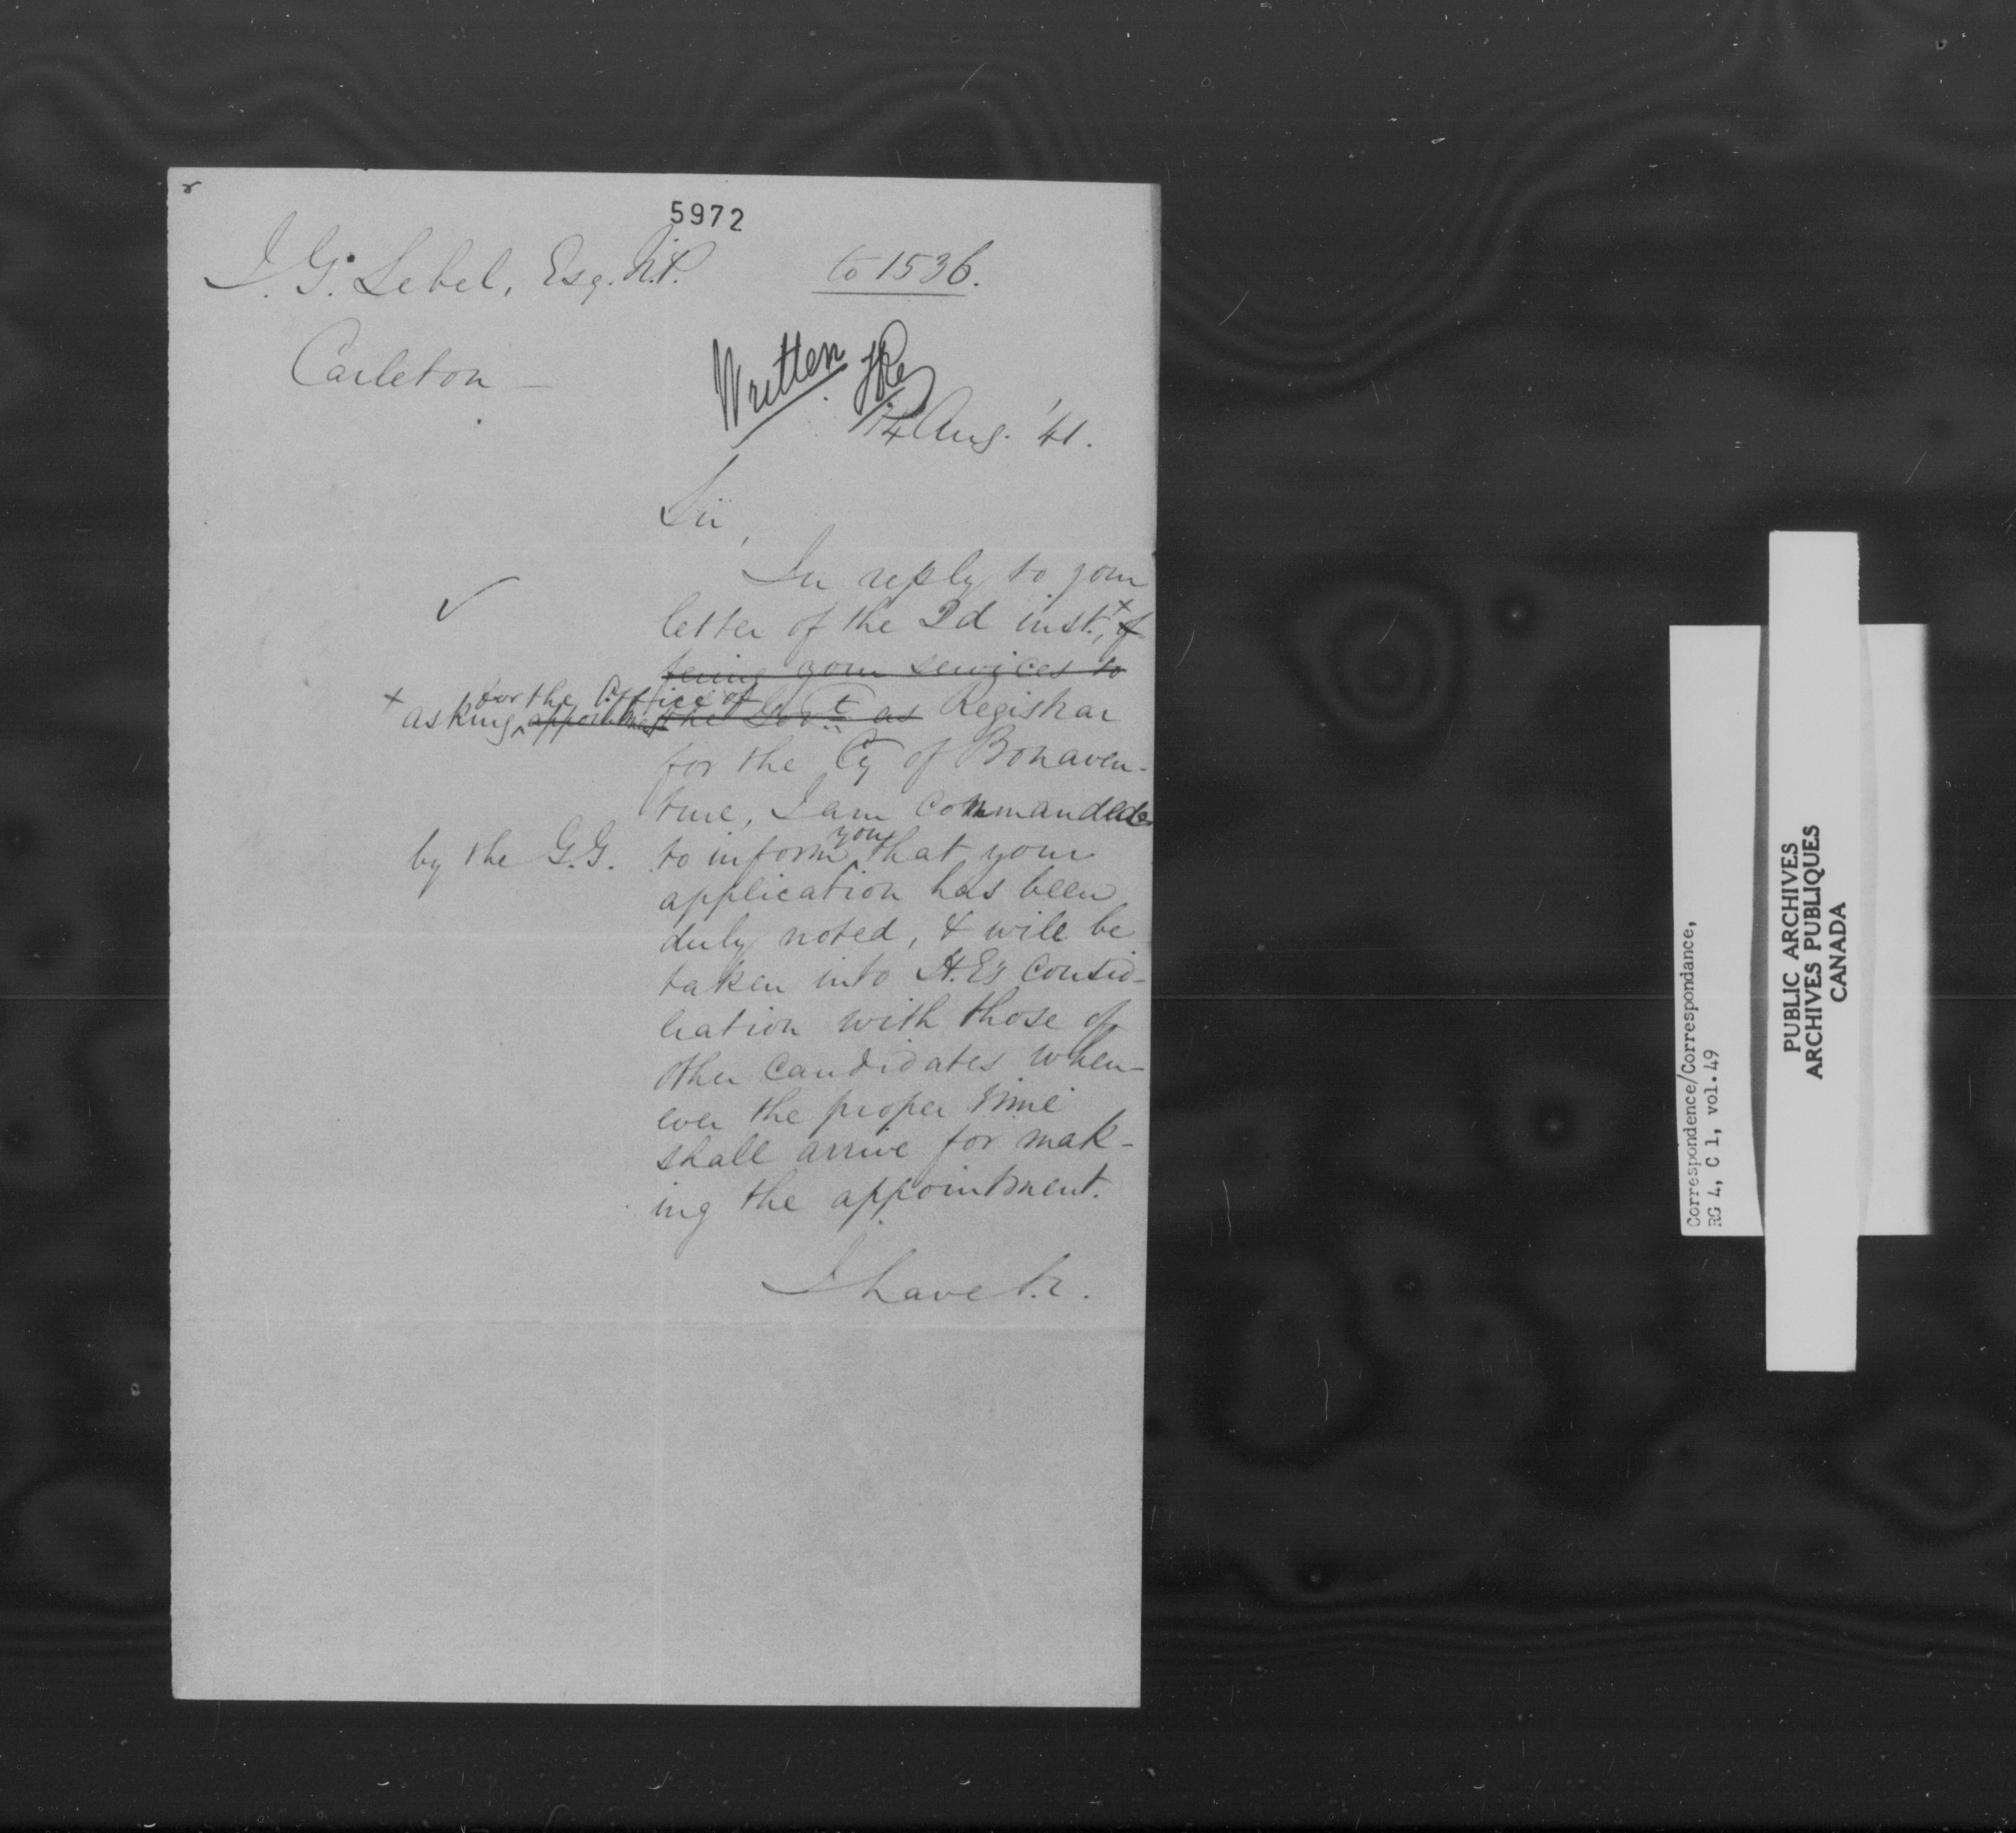 5972
J. G. Lebel, Esq. N.P.
to 1536.
Carleton —
Written
14 Aug. '41.
Sir,
In reply to your
letter of the 2d inst.,+ of
fering your services to
+ asking for the Office of appointment the Govt as Registrar
for the Cy of Bonaven-
ture, I am commanded
by the G.G. to inform you that your
application has been
duly noted, & will be
taken into H.E's consid-
eration with those of
other candidates when-
ever the proper time
shall arrive for mak-
ing the appointment.
I have &c.
Correspondence/Correspondance,
RG 4, C 1, vol.49
PUBLIC ARCHIVES
ARCHIVES PUBLIQUES
CANADA